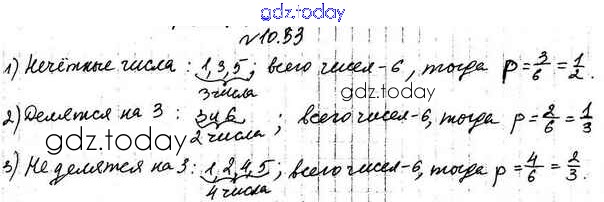 gdz.today
№10.53
1) Нечётные числа: 1, 3, 5; всего чисел - 6, тогда p = 3/6 = 1/2.
3 числа
gdz.today
2) Делятся на 3: 3 и 6; всего чисел - 6, тогда p = 2/6 = 1/3
2 числа
gdz.today
3) Не делятся на 3: 1, 2, 4, 5; всего чисел - 6, тогда p = 4/6 = 2/3.
4 числа
gdz.today